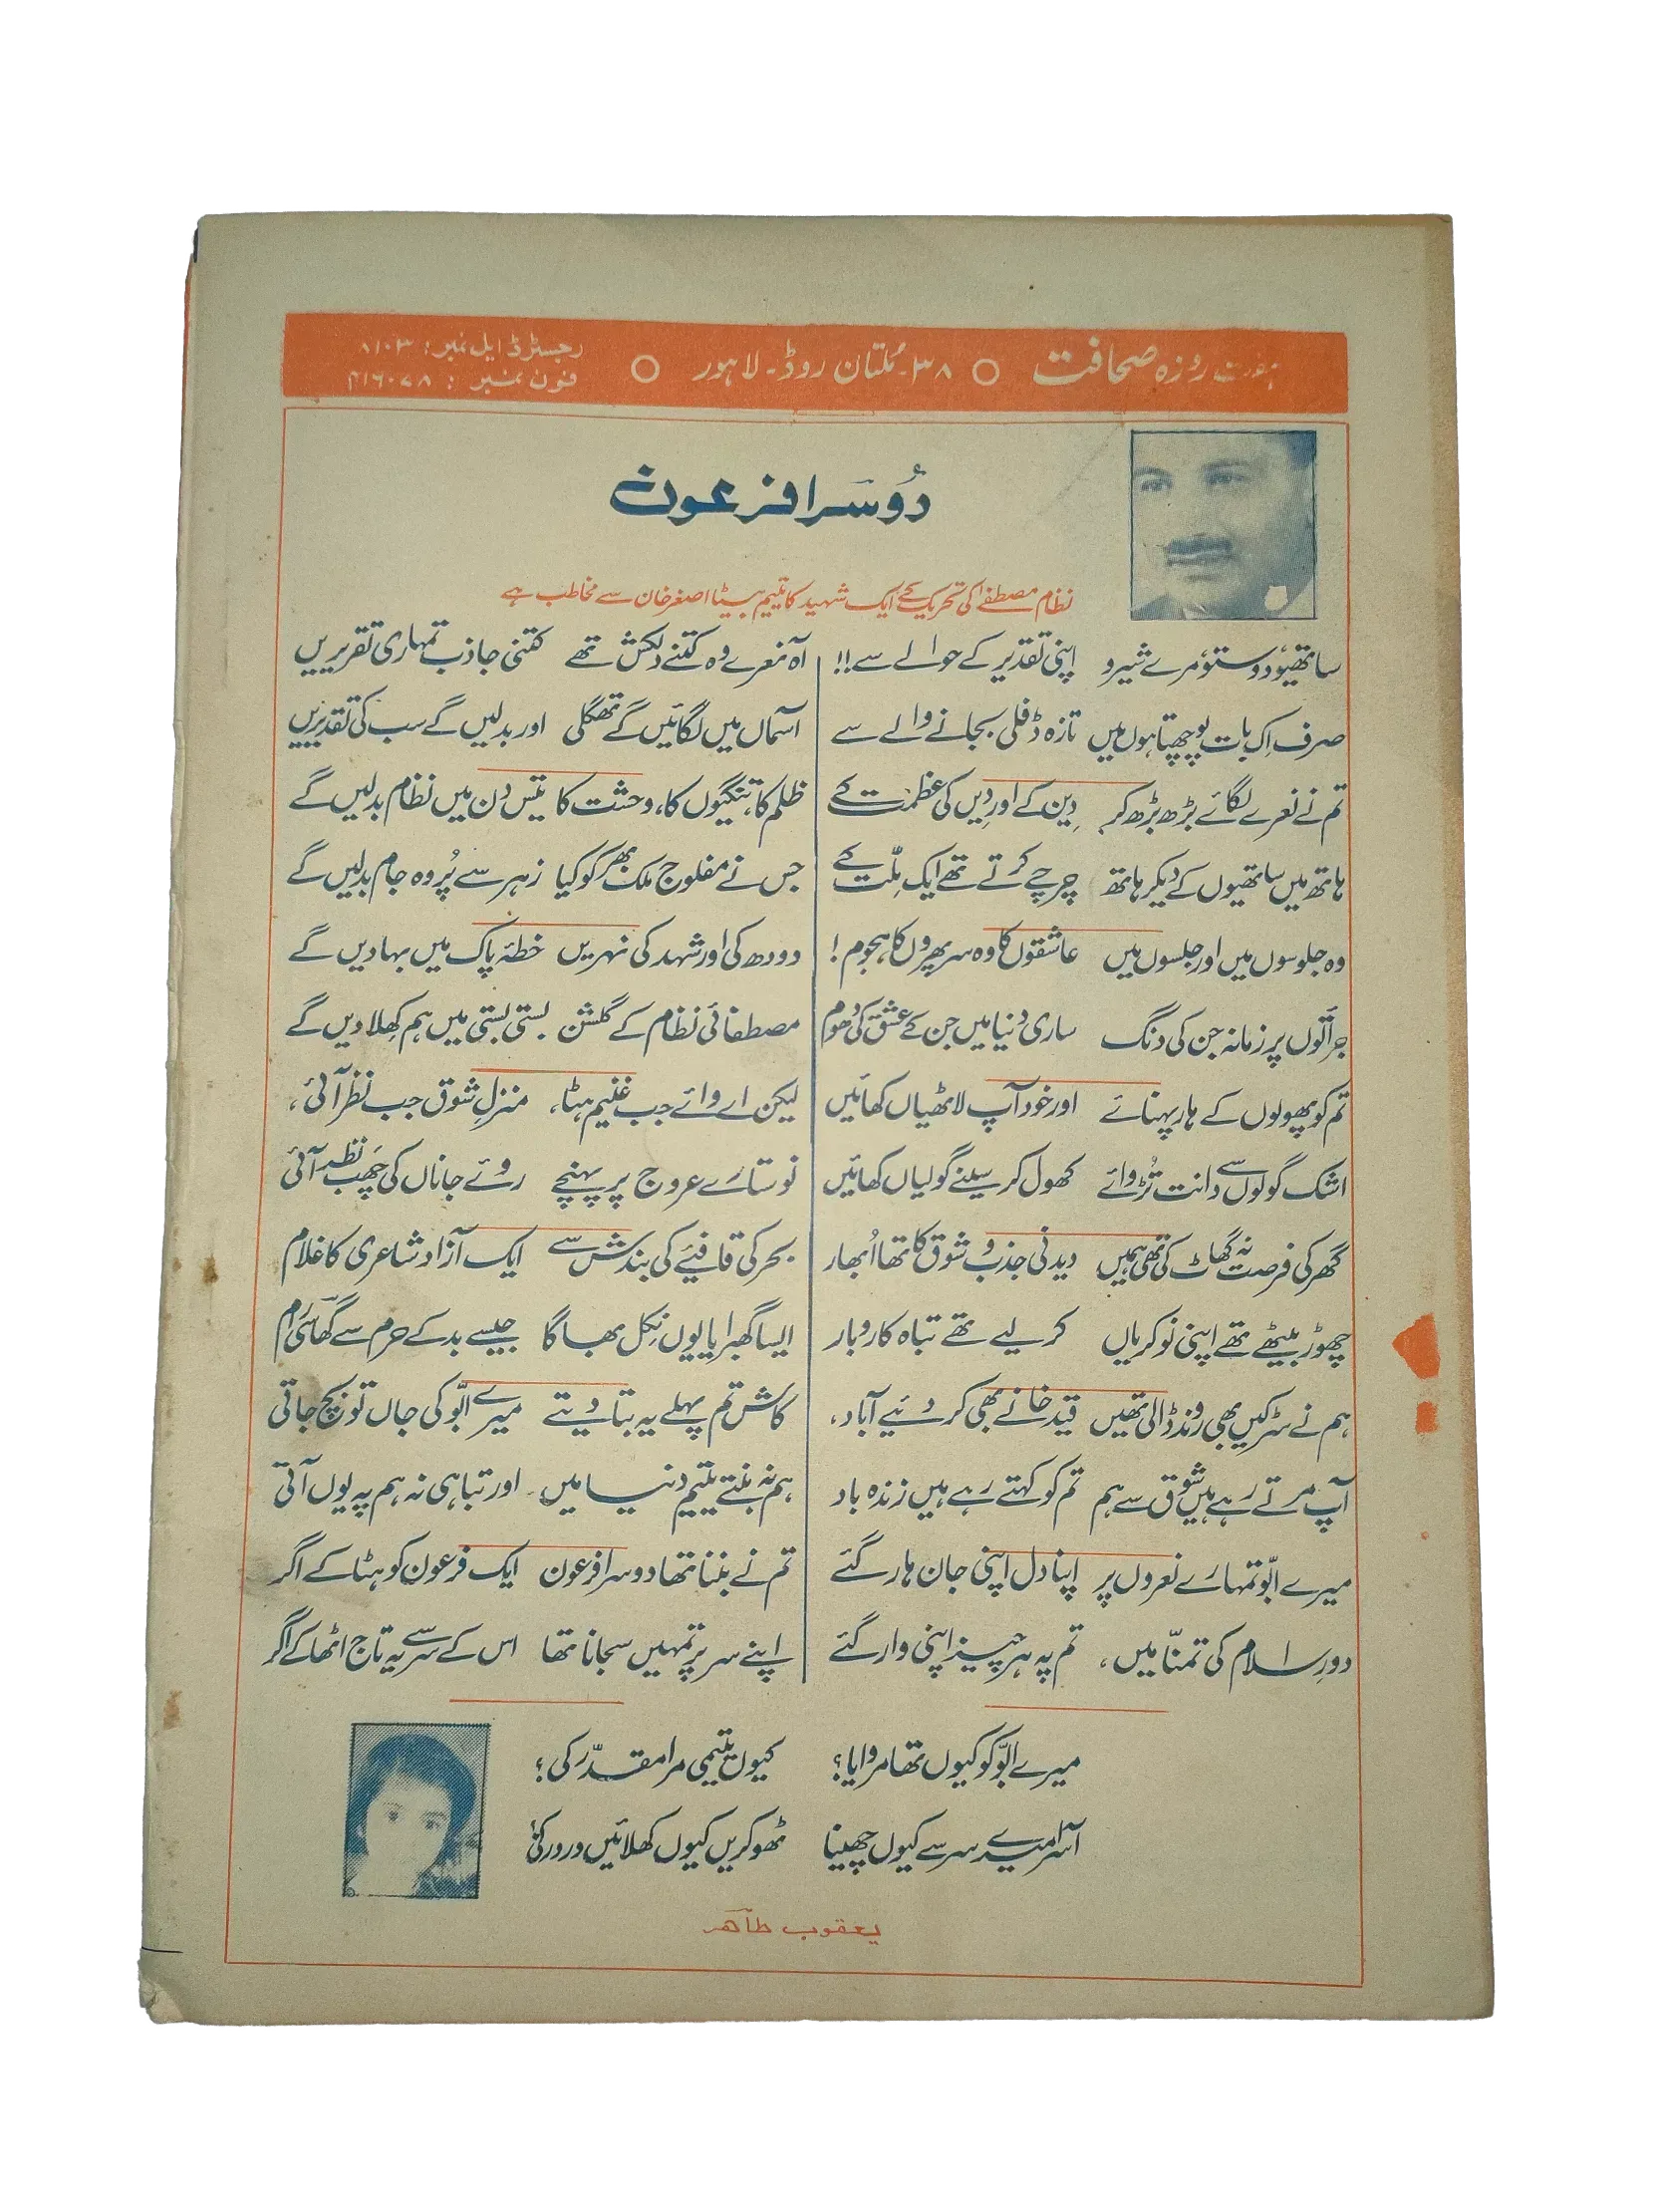 ہفت روزہ صحافت ○ ۳۸۔ ملتان روڈ۔ لاہور ○
رجسٹرڈ ایل نمبر: ۸۱۰۳
فون نمبر: ۴۱۶۰۷۸
دُوسَرا فرعون
نظام مصطفےٰ کی تحریک کے ایک شہید کا یتیم بیٹا اصغر خان سے مخاطب ہے
ساتھیو دوستو مرے شیرو اپنی تقدیر کے حوالے سے!!
صرف اِک بات پوچھتا ہوں میں تازہ ڈفلی بجانے والے سے
تم نے نعرے لگائے بڑھ بڑھ کر دِین کے اور دِیں کی عظمت کے
ہاتھ میں ساتھیوں کے دیکر ہاتھ چرچے کرتے تھے ایک ملّت کے
وہ جلوسوں میں اور جلسوں میں عاشقوں کا وہ سر پھروں کا ہجوم!
جرأتوں پر زمانہ جن کی دنگ ساری دنیا میں جن کے عشق کی دُھوم
تم کو پھولوں کے ہار پہنائے اور خود آپ لاٹھیاں کھائیں
اشک گولوں سے دانت تُڑوائے کھول کر سینے گولیاں کھائیں
گھر کی فرصت نہ گھاٹ کی تھی ہمیں دیدنی جذب و شوق کا تھا اُبھار
چھوڑ بیٹھے تھے اپنی نوکریاں کر لیے تھے تباہ کاروبار
ہم نے سڑکیں بھی روند ڈالی تھیں قید خانے بھی کر دئیے آباد،
آپ مرتے رہے ہیں شوق سے ہم تم کو کہتے رہے ہیں زندہ باد
میرے ابّو تمہارے نعروں پر اپنا دل اپنی جان ہار گئے
دورِ اسلام کی تمنّا میں، تم پہ ہر چیز اپنی وار گئے
آہ نعرے وہ کتنے دلکش تھے کتنی جاذب تمہاری تقریریں
آسماں میں لگائیں گے تھگلی اور بدلیں گے سب کی تقدیریں
ظلم کا، تنگیوں کا، وحشت کا تیس دن میں نظام بدلیں گے
جس نے مفلوج ملک بھر کو کیا زہر سے پُر وہ جام بدلیں گے
دودھ کی اور شہد کی نہریں خطۂ پاک میں بہا دیں گے
مصطفائی نظام کے گلشن بستی بستی میں ہم کِھلا دیں گے
لیکن اے وائے جب غنیم ہٹا، منزلِ شوق جب نظر آئی،
نو ستارے عروج پر پہنچے روئے جاناں کی چَھب نظر آئی
بحر کی قافیئے کی بندش سے ایک آزاد شاعری کا غلام
ایسا گھبرایا یوں نِکل بھاگا جیسے بدکے حرم سے گھاسی رام
کاش تم پہلے یہ بتا دیتے میرے ابّو کی جاں تو بچ جاتی
ہم نہ بنتے یتیم دنیا میں۔ اور تباہی نہ ہم پہ یوں آتی
تم نے بننا تھا دوسرا فرعون ایک فرعون کو ہٹا کے اگر
اپنے سر پر تمہیں سجانا تھا اس کے سر سے یہ تاج اٹھا کے اگر
میرے ابّو کو کیوں تھا مروایا؟ کیوں یتیمی مرا مقدّر کی؟
آسرا میرے سر سے کیوں چھینا ٹھوکریں کیوں کھلائیں در در کی؟
یعقوب طاہر